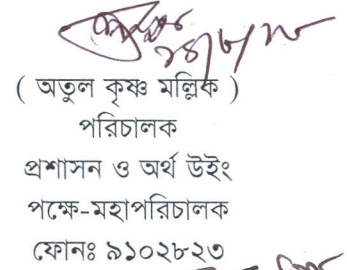 ( অতুল কৃষ্ণ মল্লিক )
পরিচালক
প্রশাসন ও অর্থ উইং
পক্ষে-মহাপরিচালক
ফোনঃ ৯১০২৮২৩